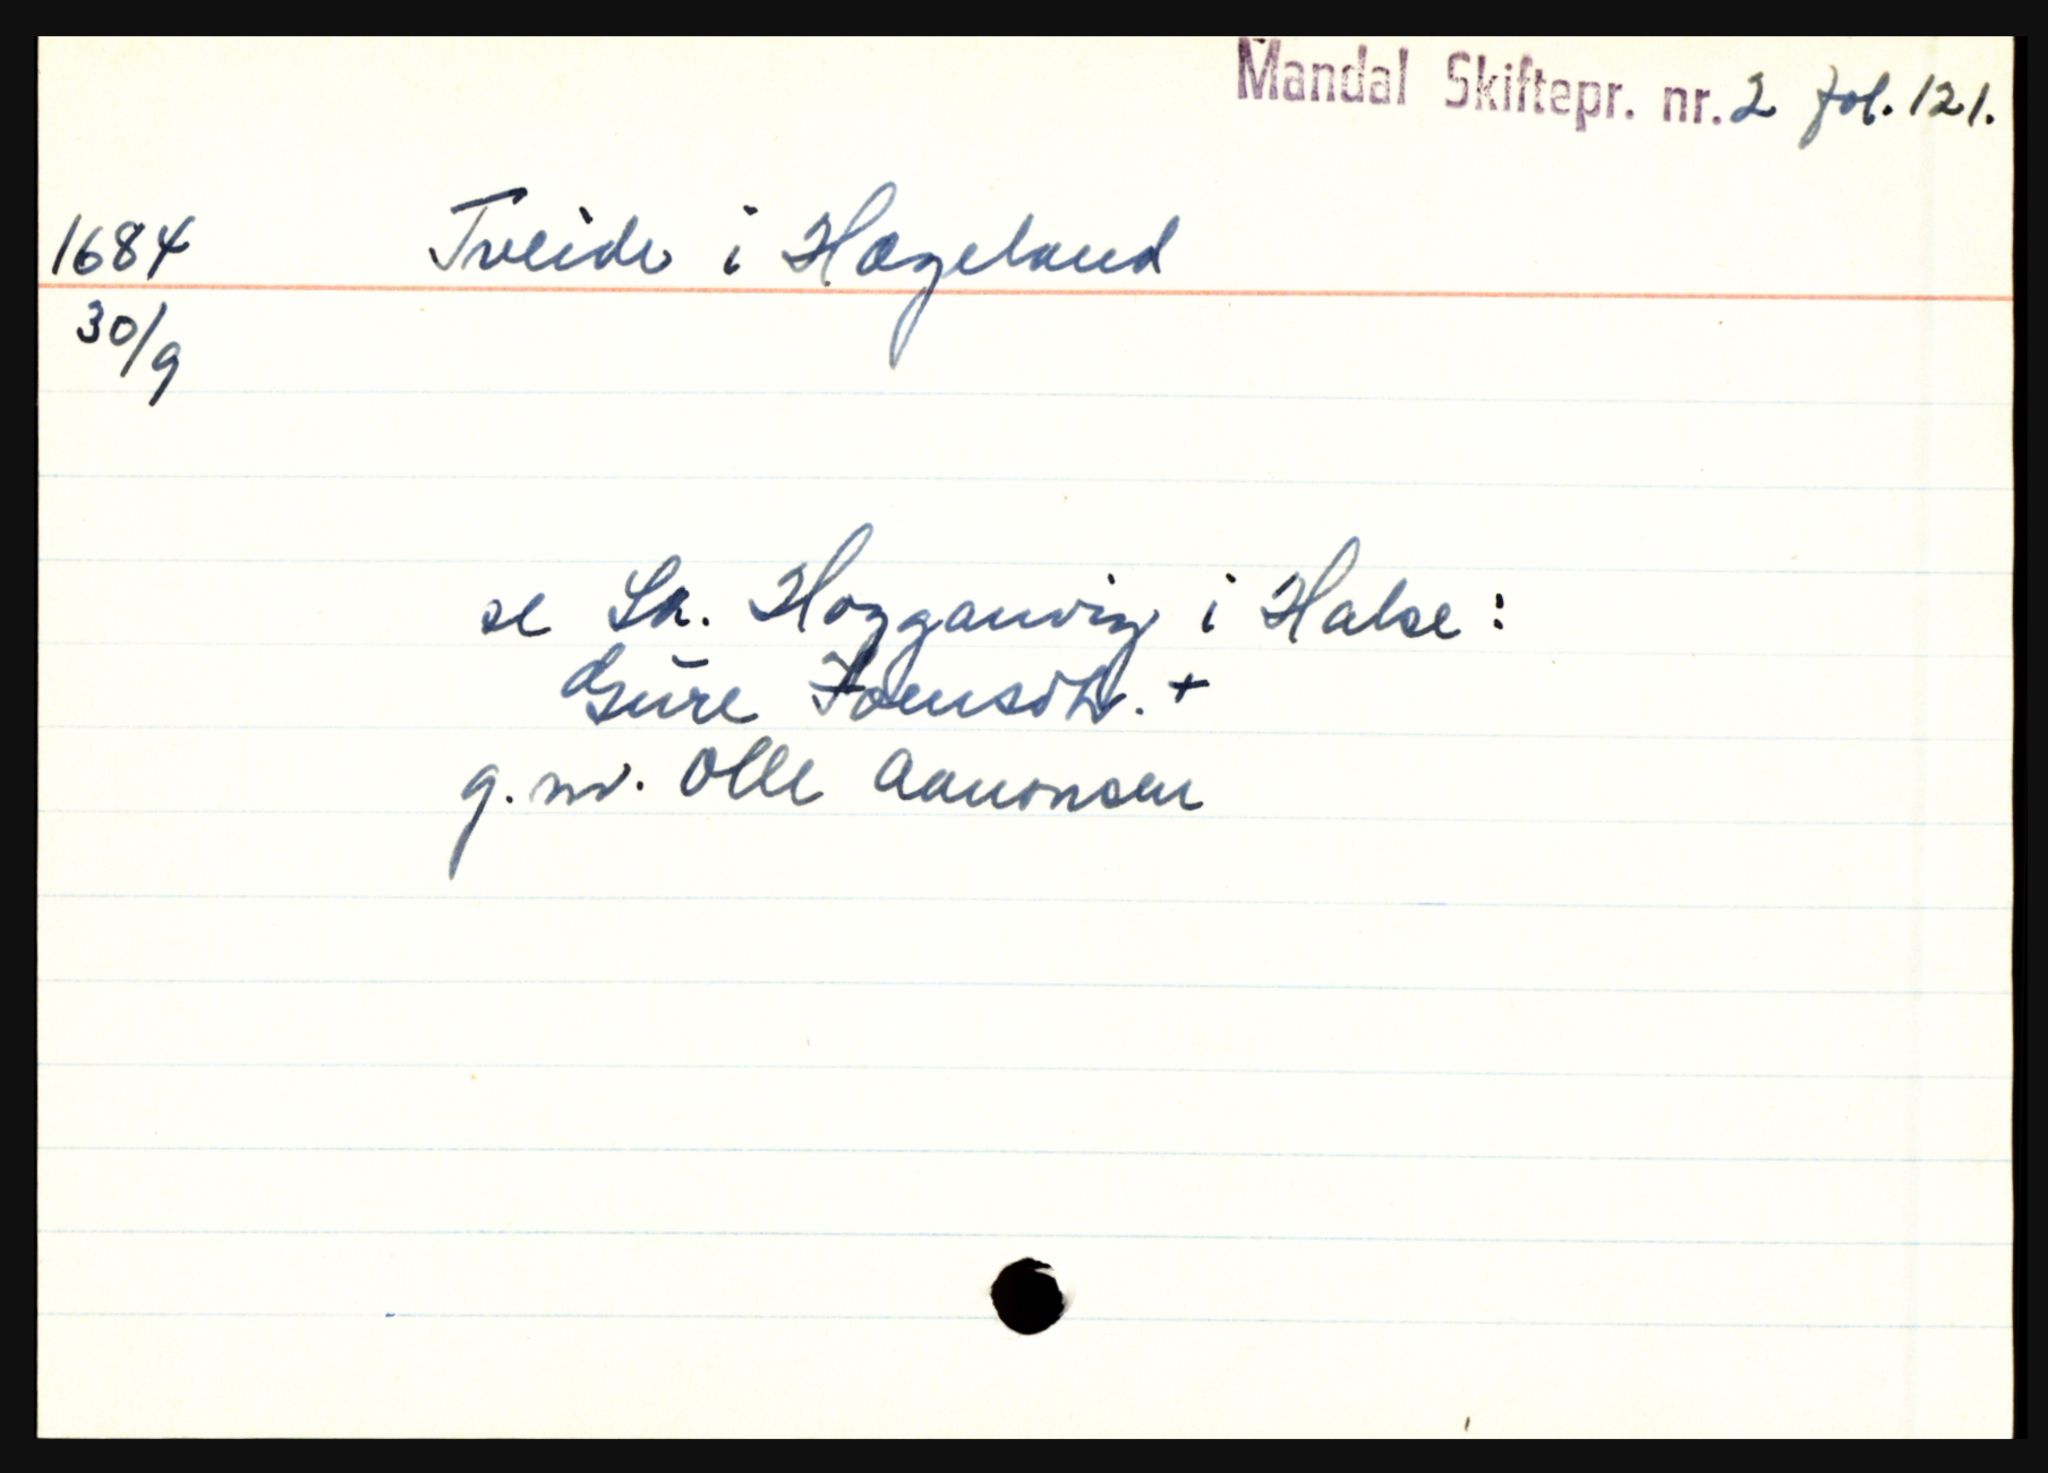 Mandal Skiftepr. nr. 2 fol. 121.
1684 Tveide i Hægeland
30/9
se Sk. Hogganvig i Halse:
Gure Joensdtr. +
g.m. Olle Aanonsen